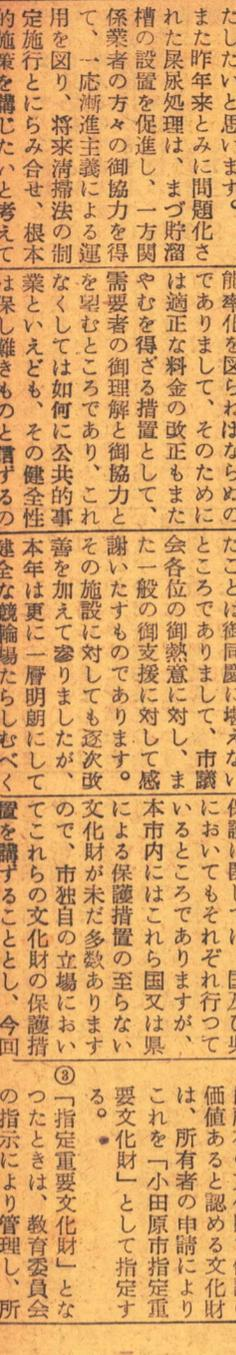 たしたいと思います。
また昨年来とみに問題化さ
れた屎尿処理は、まづ貯溜
槽の設置を促進し、一方関
係業者の方々の御協力を得
て、一応漸進主義による運
用を図り、将来清掃法の制
定施行とにらみ合せ、根本
的施策を講じたいと考えて
能率化を図らねばならぬの
でありまして、そのために
は適正な料金の改正もまた
やむを得ざる措置として、
需要者の御理解と御協力と
を望むところであり、これ
なくしては如何に公共的事
業といえども、その健全性
は保し難きものと信ずるの
たことは御同慶に堪えない
ところでありまして、市議
会各位の御熱意に対し、ま
た一般の御支援に対して感
謝いたすものであります。
その施設に対しても逐次改
善を加えて参りましたが、
本年は更に一層明朗にして
健全な競輪場たらしむべく
保護に関しては、国及び県
においてもそれぞれ行つて
いるところでありますが、
本市内にはこれら国又は県
による保護措置の至らない
文化財が未だ多数あります
ので、市独自の立場におい
てこれらの文化財の保護措
置を講ずることとし、今回
価値あると認める文化財
は、所有者の申請により
これを「小田原市指定重
要文化財」として指定す
る。
③「指定重要文化財」とな
つたときは、教育委員会
の指示により管理し、所